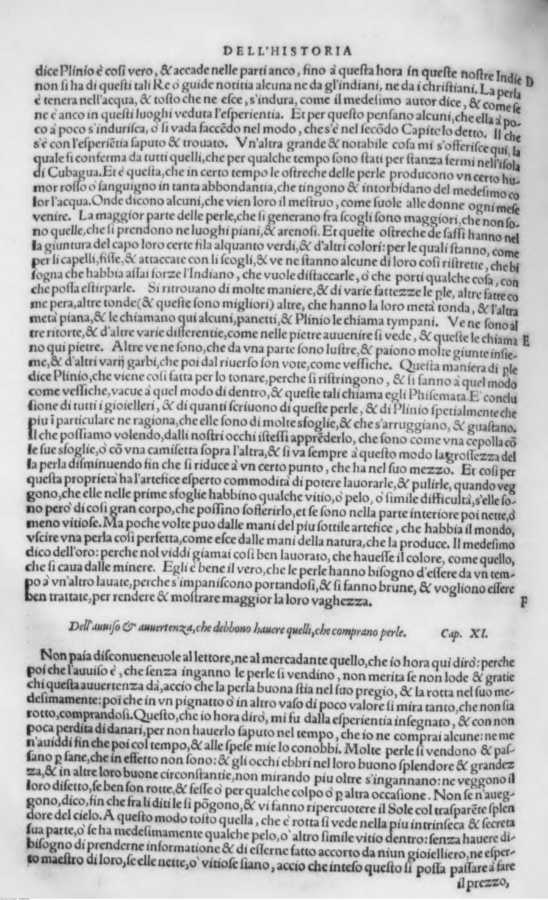 DELL'HISTORIA
dice Plinio è così vero, & accade nelle parti anco, fino à questa hora in queste nostre Indie D
non si ha di questi tali Re ò guide notitia alcuna ne da gl'indiani, ne da i christiani. La perla
è tenera nell'acqua, & tosto che ne esce, s'indura, come il medesimo autor dice, & come se
ne è anco in questi luoghi veduta l'esperientia. Et per questo pensano alcuni, che ella à po-
co à poco s'indurisca, ò si vada faccẽdo nel modo, che s'è nel secõdo Capitolo detto. Il che
s'è con l'esperiẽtia saputo & trouato. Vn'altra grande & notabile cosa mi s'offerisce qui, la
quale si conferma da tutti quelli, che per qualche tempo sono stati per stanza fermi nell'isola
di Cubagua. Et è questa, che in certo tempo le ostreche delle perle producono vn certo hu-
mor rosso ò sanguigno in tanta abbondantia, che tingono & intorbidano del medesimo co
lor l'acqua. Onde dicono alcuni, che vien loro il mestruo, come suole alle donne ogni mese
venire. La maggior parte delle perle, che si generano fra scogli sono maggiori, che non so-
no quelle, che si prendono ne luoghi piani, & arenosi. Et queste ostreche de sassi hanno nel
la giuntura del capo loro certe fila alquanto verdi, & d'altri colori: per le quali stanno, come
per li capelli, fisse, & attaccate con li scogli, & ve ne stanno alcune di loro così ristrette, che bi
sogna che habbia assai forze l'Indiano, che vuole distaccarle, ò che porti qualche cosa, con
che possa estirparle. Si ritrouano di molte maniere, & di varie fattezze le ꝑle, altre fatte co
me pera, altre tonde (& queste sono migliori) altre, che hanno la loro metà tonda, & l'altra
metà piana, & le chiamano qui alcuni, panetti, & Plinio le chiama tympani. Ve ne sono al
tre ritorte, & d'altre varie differentie, come nelle pietre auuenire si vede, & queste le chiama E
no qui pietre. Altre ve ne sono, che da vna parte sono lustre, & paiono molte giunte insie-
me, & d'altri varij garbi, che poi dal riuerso son vote, come vessiche. Questa maniera di ꝑle
dice Plinio, che viene così fatta per lo tonare, perche si ristringono, & si fanno à quel modo
come vessiche, vacue à quel modo di dentro, & queste tali chiama egli Phisemata. E conclu
sione di tutti i gioiellieri, & di quanti scriuono di queste perle, & di Plinio spetialmente che
piu ĩ particulare ne ragiona, che elle sono di molte sfoglie, & che s'arruggiano, & guastano.
Il che possiamo volendo, dalli nostri occhi istessi apprẽderlo, che sono come vna cepolla cõ
le sue sfoglie, ò cõ vna camisetta sopra l'altra, & si va sempre à questo modo la grossezza del
la perla disminuendo fin che si riduce à vn certo punto, che ha nel suo mezzo. Et così per
questa proprietà ha l'artefice esperto commodità di potere lauorarle, & pulirle, quando veg
gono, che elle nelle prime sfoglie habbino qualche vitio, ò pelo, ò simile difficultà, s'elle so-
no però di così gran corpo, che possino sofferirlo, et se sono nella parte interiore poi nette, ò
meno vitiose. Ma poche volte può dalle mani del piu sottile artefice, che habbia il mondo,
vscire vna perla così perfetta, come esce dalle mani della natura, che la produce. Il medesimo
dico dell'oro: perche nol viddi giamai così ben lauorato, che hauesse il colore, come quello,
che si caua dalle minere. Egli è bene il vero, che le perle hanno bisogno d'essere da vn tem-
po à vn'altro lauate, perche s'impaniscono portandosi, & si fanno brune, & vogliono essere
ben trattate, per rendere & mostrare maggior la loro vaghezza. F
Dell'auuiso & auuertenza, che debbono hauere quelli, che comprano perle. Cap. XI.
Non paia disconueneuole al lettore, ne al mercadante quello, che io hora qui dirò: perche
poi che l'auuiso è, che senza inganno le perle si vendino, non merita se non lode & gratie
chi questa auuertenza dà, accio che la perla buona stia nel suo pregio, & la rotta nel suo me-
desimamente: poi che in vn pignatto ò in altro vaso di poco valore si mira tanto, che non sia
rotto, comprandosi. Questo, che io hora dirò, mi fu dalla esperientia insegnato, & con non
poca perdita di danari, per non hauerlo saputo nel tempo, che io ne comprai alcune: ne me
n'auiddi fin che poi col tempo, & alle spese mie lo conobbi. Molte perle si vendono & pas-
sano ꝑ sane, che in effetto non sono: & gli occhi ebbri nel loro buono splendore & grandez
za, & in altre loro buone circonstantie, non mirando piu oltre s'ingannano: ne veggono il
loro difetto, se ben son rotte, & fesse ò per qualche colpo ò ꝑ altra occasione. Non se n'aueg-
gono, dico, fin che fra li diti le si põgono, & vi fanno ripercuotere il Sole col trasparẽte splen
dore del cielo. A questo modo tosto quella, che è rotta si vede nella piu intrinseca & secreta
sua parte, ò se ha medesimamente qualche pelo, ò altro simile vitio dentro: senza hauere di-
bisogno di prenderne informatione & di esserne fatto accorto da niun gioielliero, ne esper-
to maestro di loro, se elle nette, ò vitiose siano, accio che inteso questo si possa passare à fare
il prezzo,